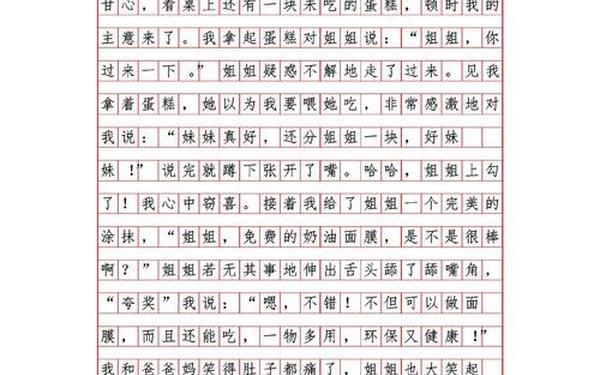 甘心，看桌上还有一块未吃的蛋糕，顿时我的
主意来了。我拿起蛋糕对姐姐说：“姐姐，你
过来一下。”姐姐疑惑不解地走了过来。见我
拿着蛋糕，她以为我要喂她吃，非常感激地对
我说：“妹妹真好，还分姐姐一块，好妹
妹！”说完就蹲下张开了嘴。哈哈，姐姐上勾
了！我心中窃喜。接着我给了姐姐一个完美的
涂抹，“姐姐，免费的奶油面膜，是不是很棒
啊？”姐姐若无其事地伸出舌头舔了舔嘴角，
“夸奖”我说：“嗯，不错！不但可以做面
膜，而且还能吃，一物多用，环保又健康！”
我和爸爸妈笑得肚子都痛了，姐姐也大笑起